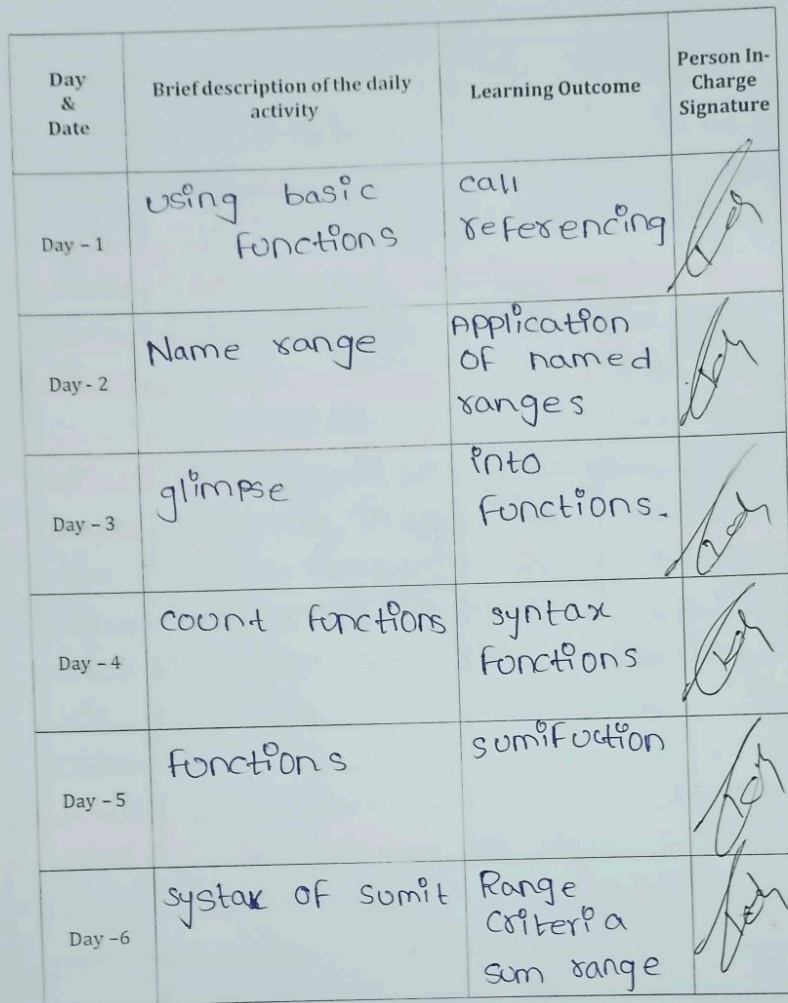 Day
&
Date
Brief description of the daily
activity
Learning Outcome
Person In-
Charge
Signature
Day – 1
using basic
functions
call
referencing
Day - 2
Name range
Application
of named
ranges
Day – 3
glimpse
into
functions.
Day – 4
count functions
syntax
functions
Day – 5
functions
sumifuction
Day –6
systax of sumit
Range
criteria
sum range